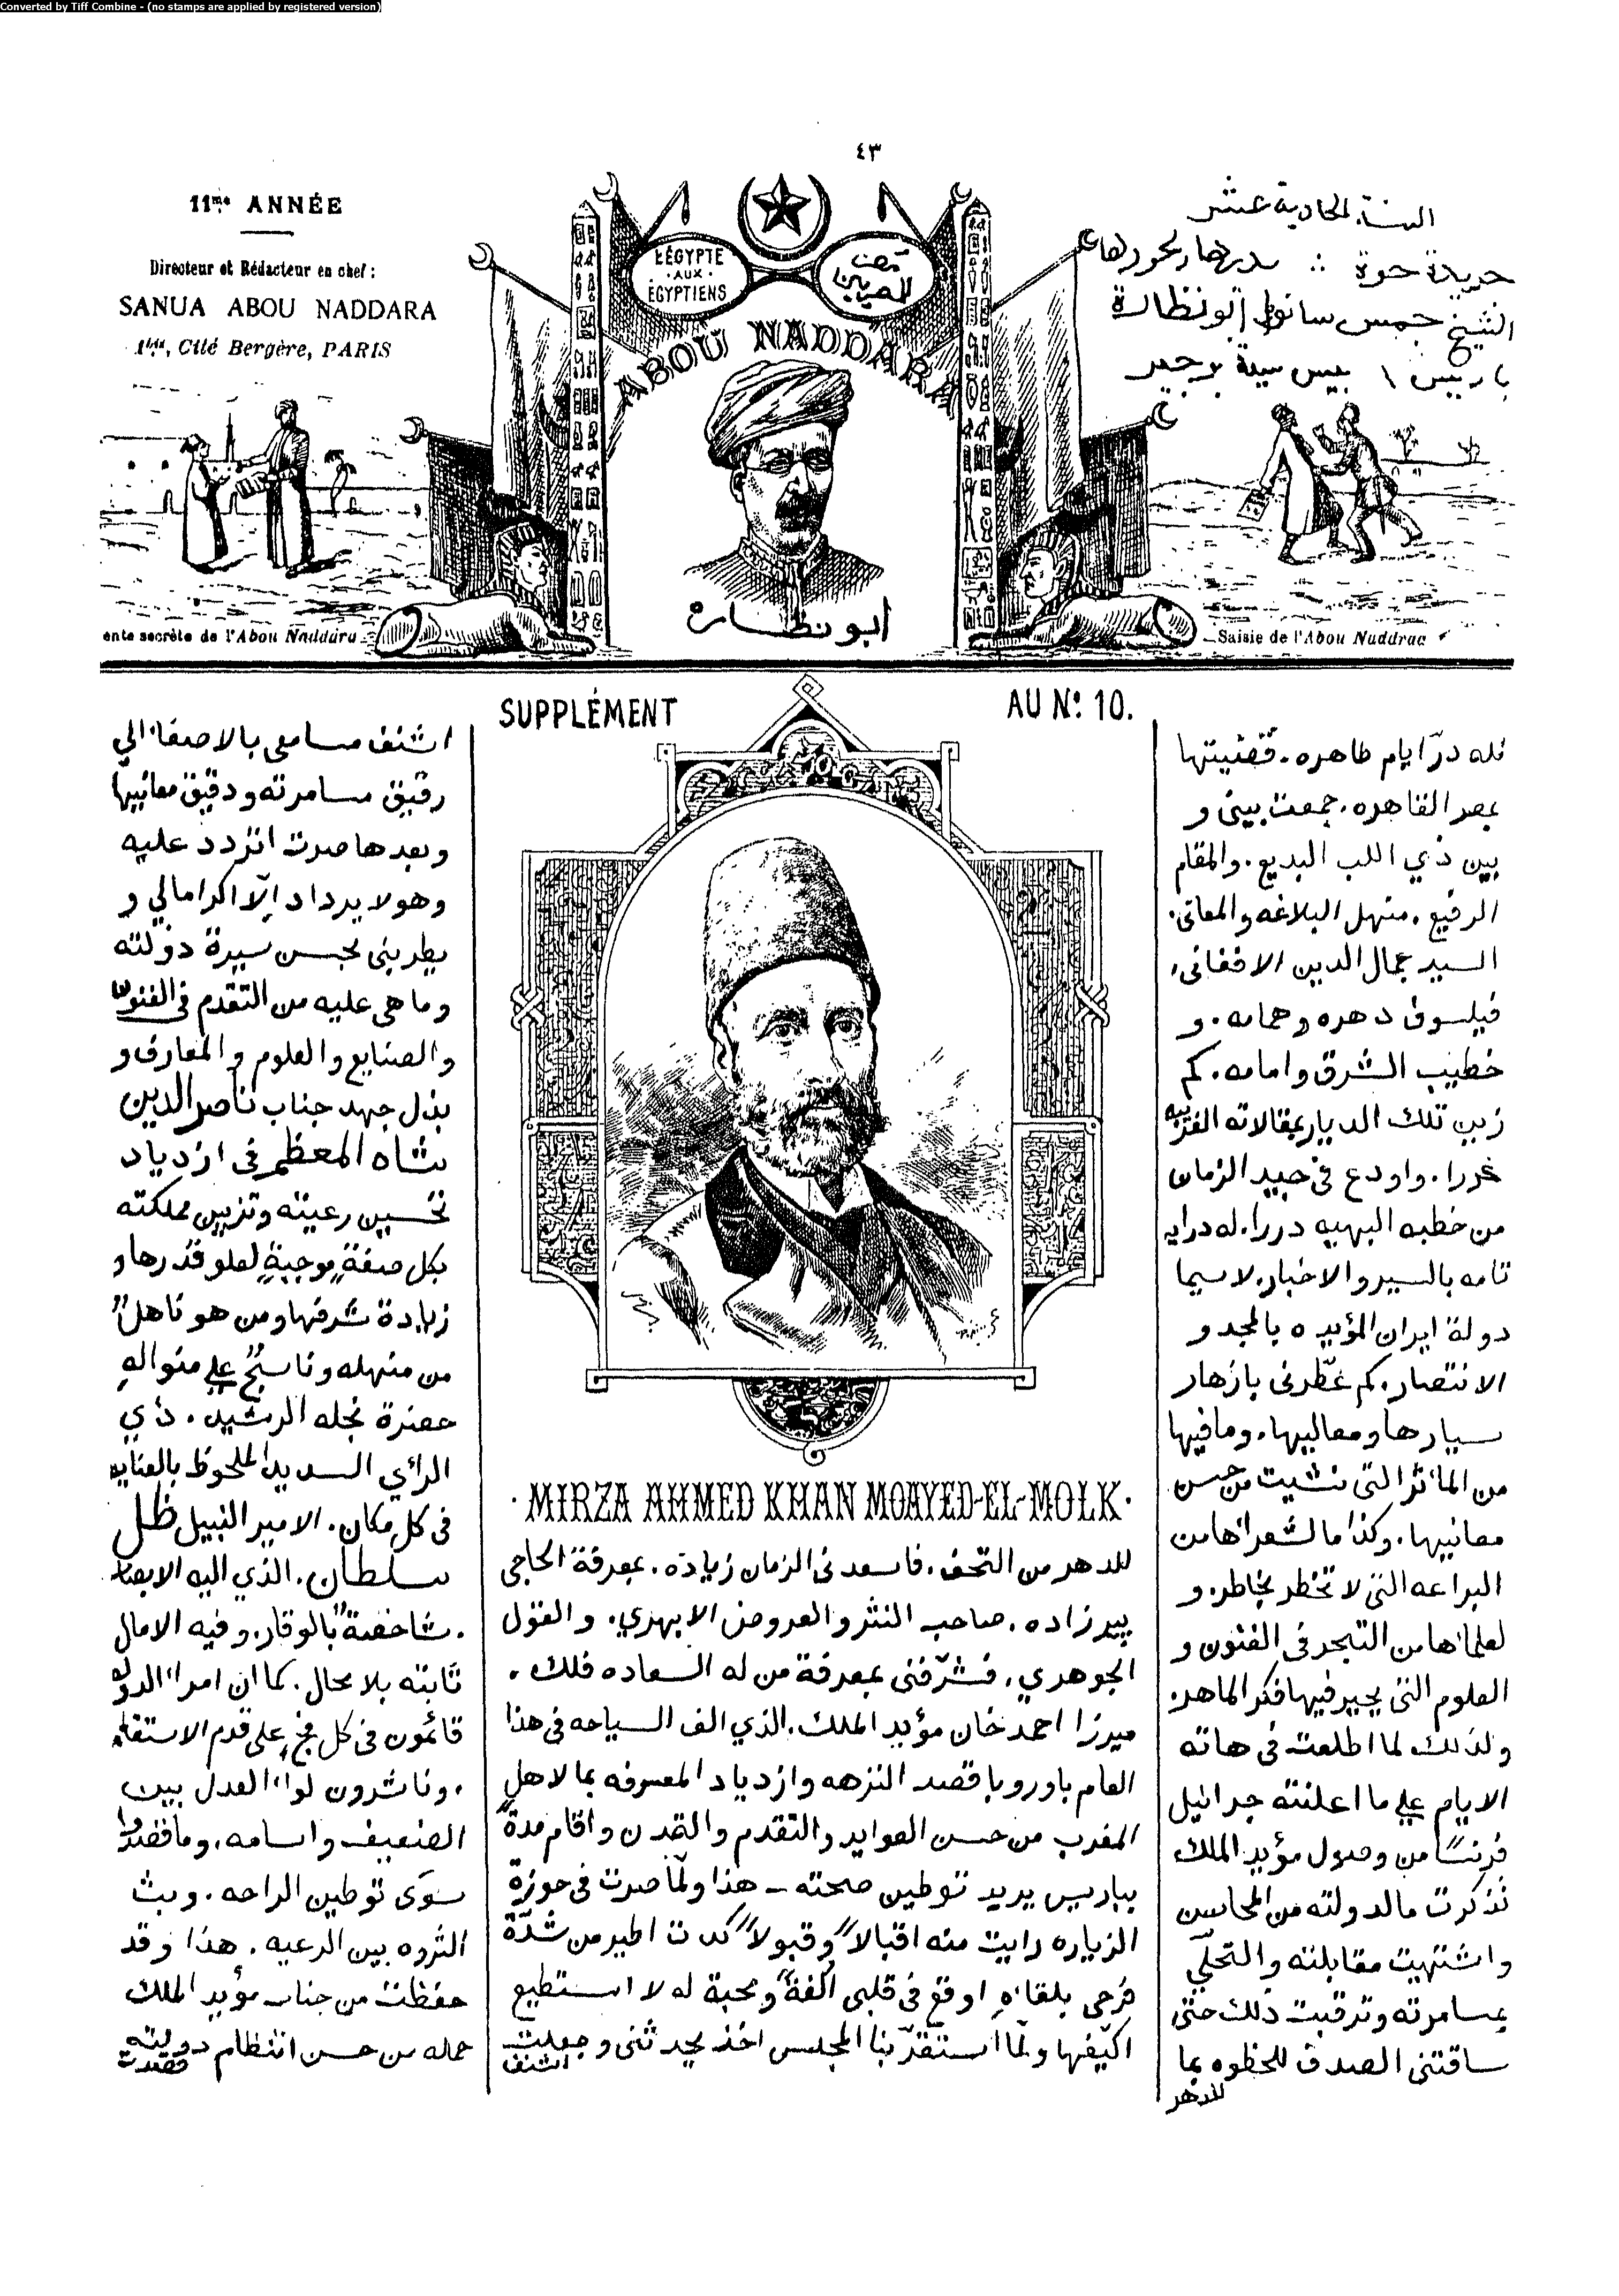 Converted by Tiff Combine - (no stamps are applied by registered version)
٤٣
11me ANNÉE
Directeur et Rédacteur en chef :
SANUA ABOU NADDARA
1bis, Cité Bergère, PARIS
L'ÉGYPTE
AUX
ÉGYPTIENS
مصر
للمصريين
ABOU NADDARA
ابو نظاره
السنة الحادية عشر
جريدة حرة : مديرها ومحررها
الشيخ جمس سانوا ابو نظارة
باريس ١ بيس سيتة برجير
ente secrète de l'Abou Naddara
Saisie de l'Abou Naddrac
SUPPLÉMENT
AU No 10.
لله درّ ايام طاهره. قضيتها
بمصر القاهره. جمعت بيني و
بين ذي اللب البديع. والمقام
الرفيع. منهل البلاغه والمعاني.
السيد جمال الدين الافغاني.
فيلسوف دهره وهمامه. و
خطيب الشرق وامامه. كم
زين تلك الديار بمقالاته الغريبه
غررا. واودع في جيد الزمان
من خطبه البهيه دررا. له درايه
تامه بالسير والاخبار. لا سيما
دولة ايران المؤيده بالمجد و
الانتصار. كم عطّرني بازهار
سيارها ومعاليها. وما فيها
من المآثر التي نشيت من حسن
معانيها. وكذا ما لشعرائها من
البراعه التي لا تخطر بخاطر. و
لعلمائها من التبحر في الفنون و
العلوم التي يحير فيها فكر الماهر.
ولذلك لما اطلعت في هاته
الايام على ما اعلنته جرانيل
فرنسا من وصول مؤيد الملك
تذكرت ما لدولته من المحاسن
واشتهيت مقابلته والتحلّي
بمسامرته وترقبت ذلك حتى
ساقتني الصدف للحظوه بما
للدهر
MIRZA AHMED KHAN MOAYED-EL-MOLK
للدهر من التحف. فاسعدني الزمان زياده. بمعرفة الحاجي
پيرزاده. صاحب النثر والعروض الابهري. والقول
الجوهري. فشرّفني بمعرفة من له السعاده فلك.
ميرزا احمد خان مؤيد الملك. الذي الف السياحه في هذا
العام باوروبا قصد النزهه وازدياد المعرفه بما لاهل
المغرب من حسن العوايد والتقدم والتمدن واقام مدة
بباريس يريد توطين صحته – هذا ولمّا صرت في حوزة
الزياره رايت منه اقبالاً وقبولاً كدت اطير من شدّة
فرحي بلقائه اوقع في قلبي الفةً ومحبة له لا استطيع
اكيّفها ولمّا استقرّ بنا المجلس اخذ يحدثني وجعلت
اشنف
اشنف مسامعي بالاصغاء الي
رقيق مسامرته ودقيق معانيها
وبعدها صرت اتردد عليه
وهو لا يزداد إلّا اكراما لي و
يطربني بحسن سيرة دولته
وما هي عليه من التقدم في الفنون
والصنايع والعلوم والمعارف و
بذل جهد جناب ناصر الدين
شاه المعظم في ازدياد
تحسين رعيته وتزيين مملكته
بكل صفةٍ موجبةٍ لعلو قدرها و
زيادة شرفها ومن هو ناهلٌ
من منهله وناسجٌ على منواله
حضرة نجله الرشيد. ذي
الرائي السديد الملحوظ بالعنايه
في كل مكان. الامير النبيل ظل
سلطان. الذي اليه الابصار
شاخصةً بالوقار. وفيه الامال
ثابته بلا محال. كما ان امراء الدوله
قائمون في كل فجٍ على قدم الاستقامه
. وناشرون لواء العدل بين
الضعيف واسامه. وما قصدوا
سوى توطين الراحه. وبث
الثروه بين الرعيه. هذا وقد
حفظت من جناب مؤيد الملك
جمله من حسن انتظام دولته
قصدت